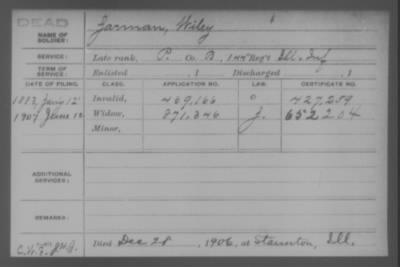 DEAD
NAME OF SOLDIER: Jarman, Wiley
SERVICE: Late rank, P. Co. B, 144 Reg't Ill. Inf
TERM OF SERVICE: Enlisted , 1 Discharged , 1
DATE OF FILING. CLASS. APPLICATION NO. LAW. CERTIFICATE NO.
Invalid, 469,166 427,259
1907 12 Widow, 871,346 652204
Minor,
ADDITIONAL SERVICES:
REMARKS:
Died Dec 28, 1906, at Staunton, Ill.